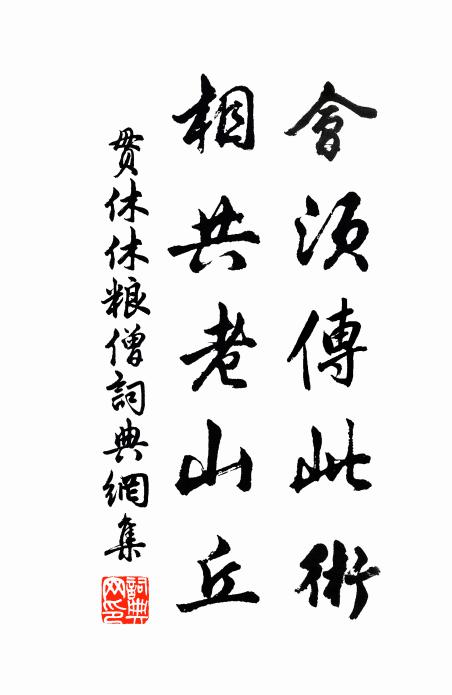 會須傳此術
相共老山丘
貫休休粮僧詞典網集
詞典網印